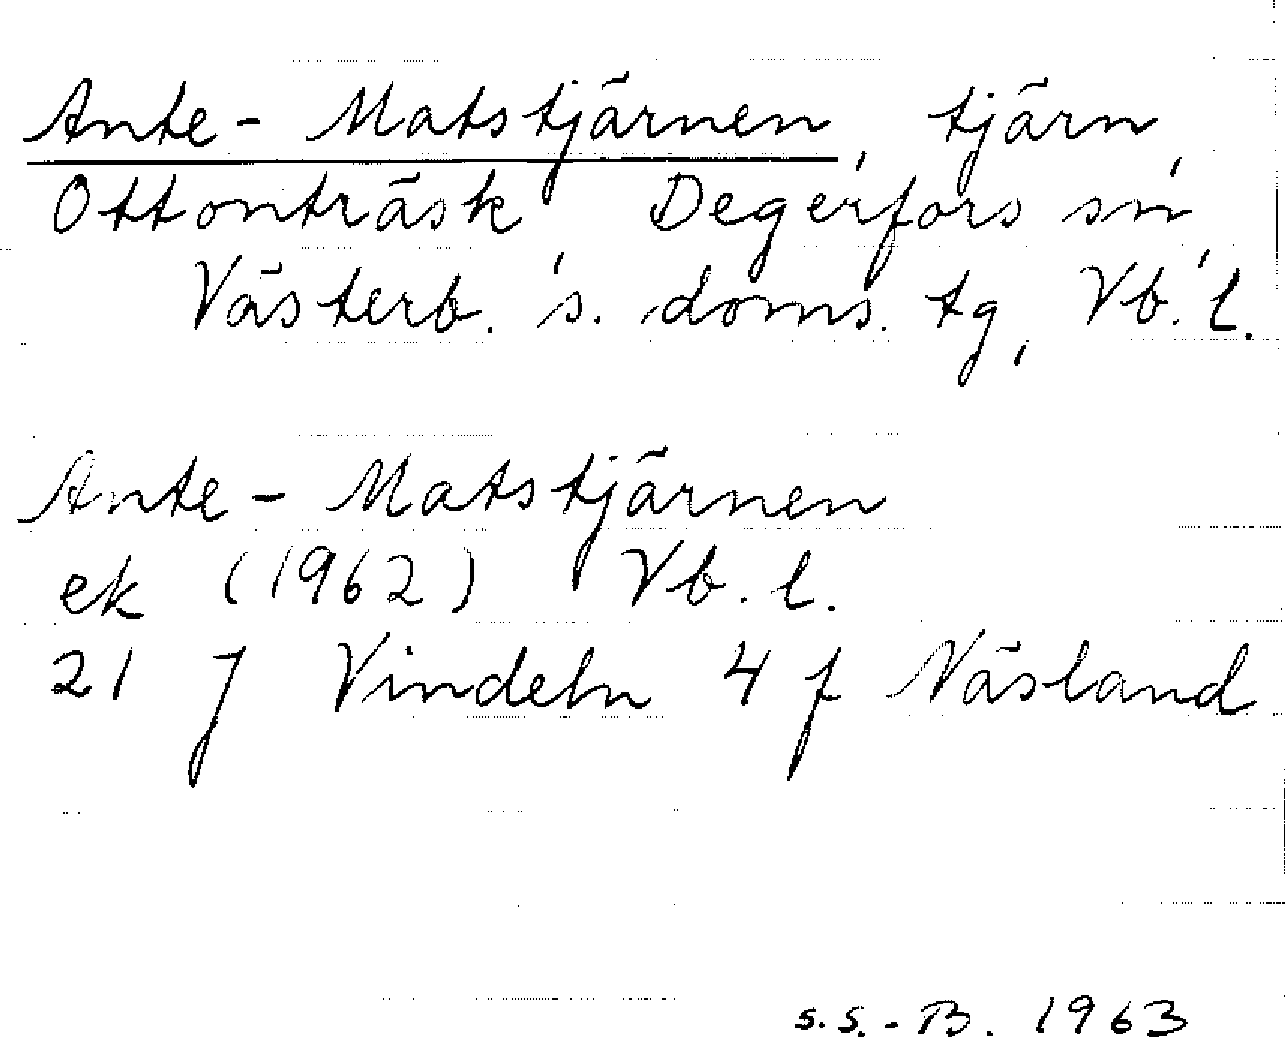 Ante-Matstjärnen, tjärn,
Ottonträsk, Degerfors sn,
Västerb. s. doms. tg, Vb. l.
Ante-Matstjärnen
ek (1962) Vb. l.
21 J Vindeln 4 f Näsland
s.s.-B. 1963